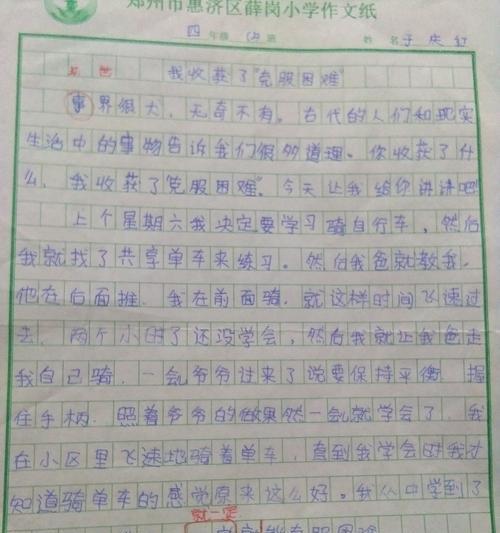 郑州市惠济区薛岗小学作文纸
四年级 班 姓名
世 我收获了“克服困难”
事界很大，无奇不有。古代的人们和现实
生活中的事物告诉我们很多道理。你收获了什
么，我收获了“克服困难”。今天让我给你讲讲吧！
上个星期六我决定要学习骑自行车，然后
我就找了共享单车来练习。然后我爸就教我，
他在后面推，我在前面骑，就这样时间飞速过
去，两个小时了还没学会，然后我就让我爸走
我自己骑，一会爷爷过来了说要保持平衡，握
住手柄，照着爷爷的做果然一会就学会了，我
在小区里飞速地骑着单车，直到我学会时我才
知道骑单车的感觉原来这么好。我从中学到了
就一定
克服困难